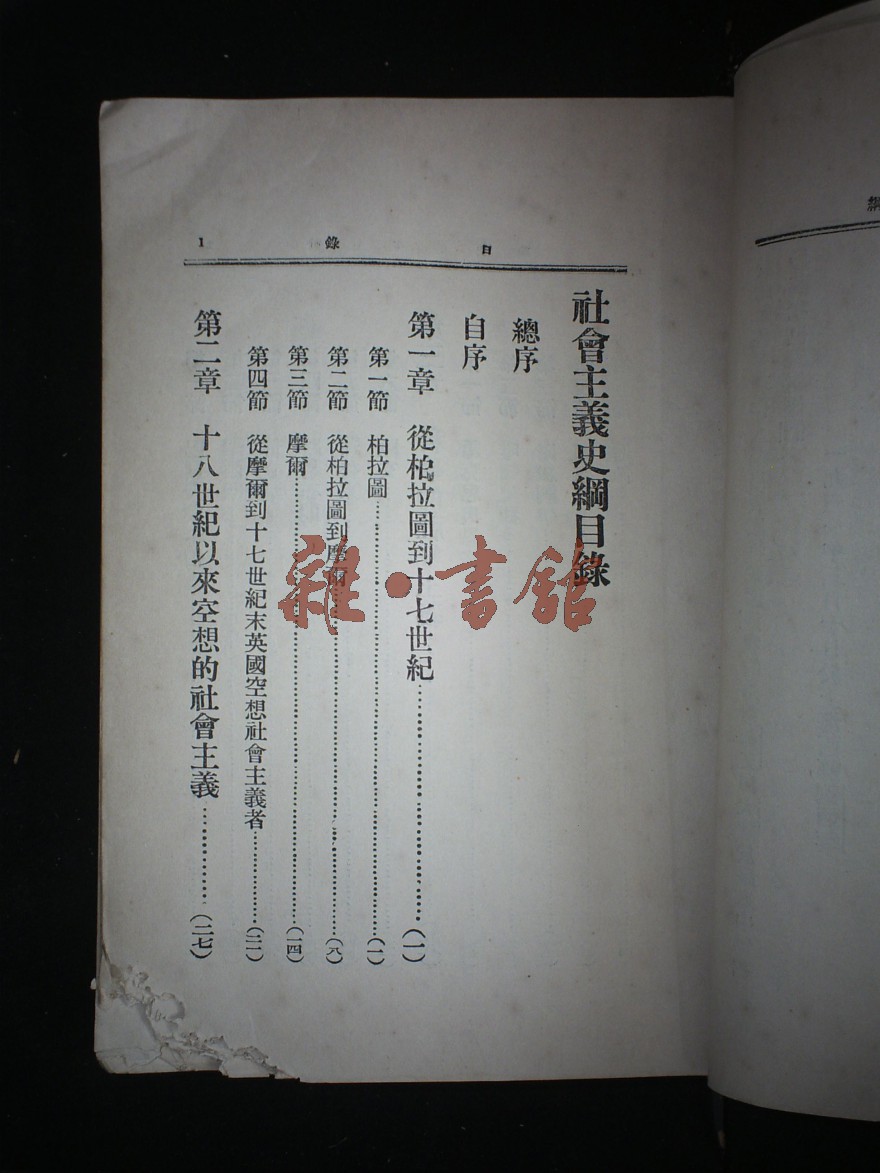 目錄 1
社會主義史綱目錄
總序
自序
第一章 從柏拉圖到十七世紀……………………(一)
第一節 柏拉圖……………………(一)
第二節 從柏拉圖到摩爾……………………(八)
第三節 摩爾……………………(一四)
第四節 從摩爾到十七世紀末英國空想社會主義者……………………(二一)
第二章 十八世紀以來空想的社會主義……………………(二七)
雜·書館
綱